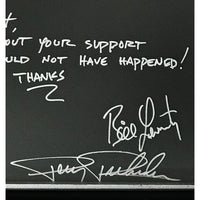 OUT YOUR SUPPORT
ULD NOT HAVE HAPPENED!
THANKS
Bill